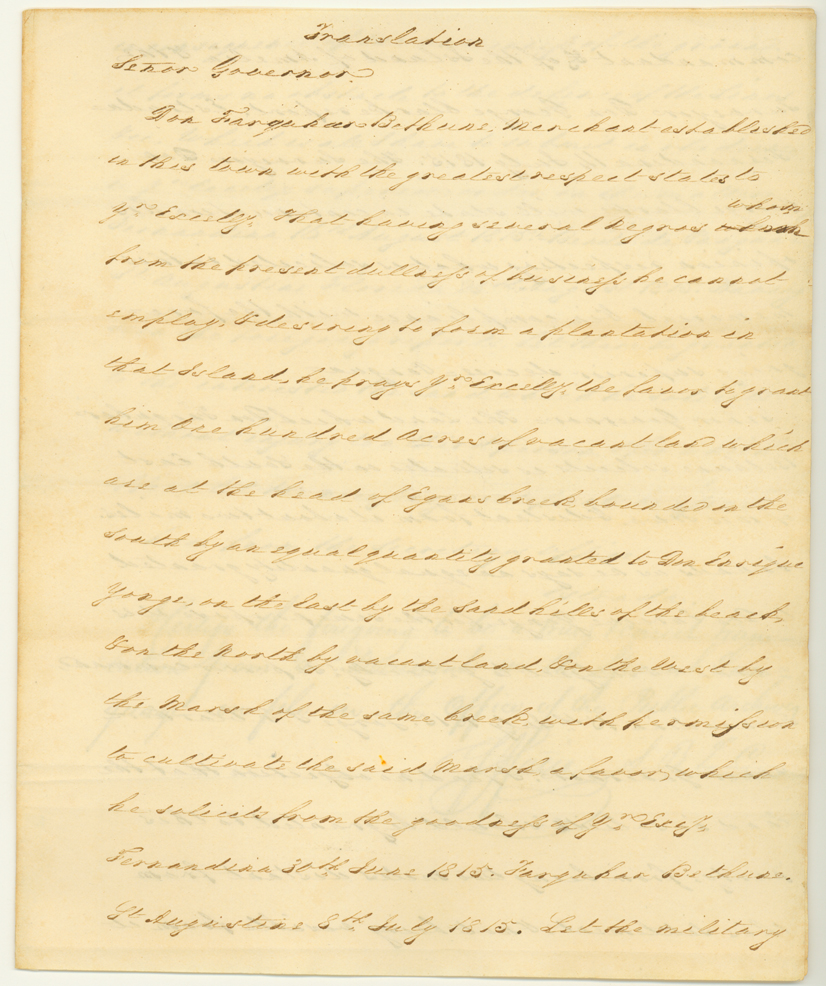 Translation
Señor Governor.
Don Farquhar Bethune, Merchant established
in this town with the greatest respect states to
whom
yr. Excelly. That having several negros which
from the present dullness of business he cannot
employ, & desiring to form a plantation in
that Island, he prays yr. Excelly. the favor to grant
him One hundred Acres of vacant land which
are at the head of Egans Creek bounded on the
south by an equal quantity granted to Don Enrique
Yonge, on the East by the Sand hills of the beach,
& on the North by vacant land, & on the West by
the Marsh of the same Creek, with permission
to cultivate the said Marsh, a favor, which
he solicits from the goodness of Yr. Excy.
Fernandina 30th June 1815. Farquhar Bethune.
St Augustine 8th. July 1815. Let the military